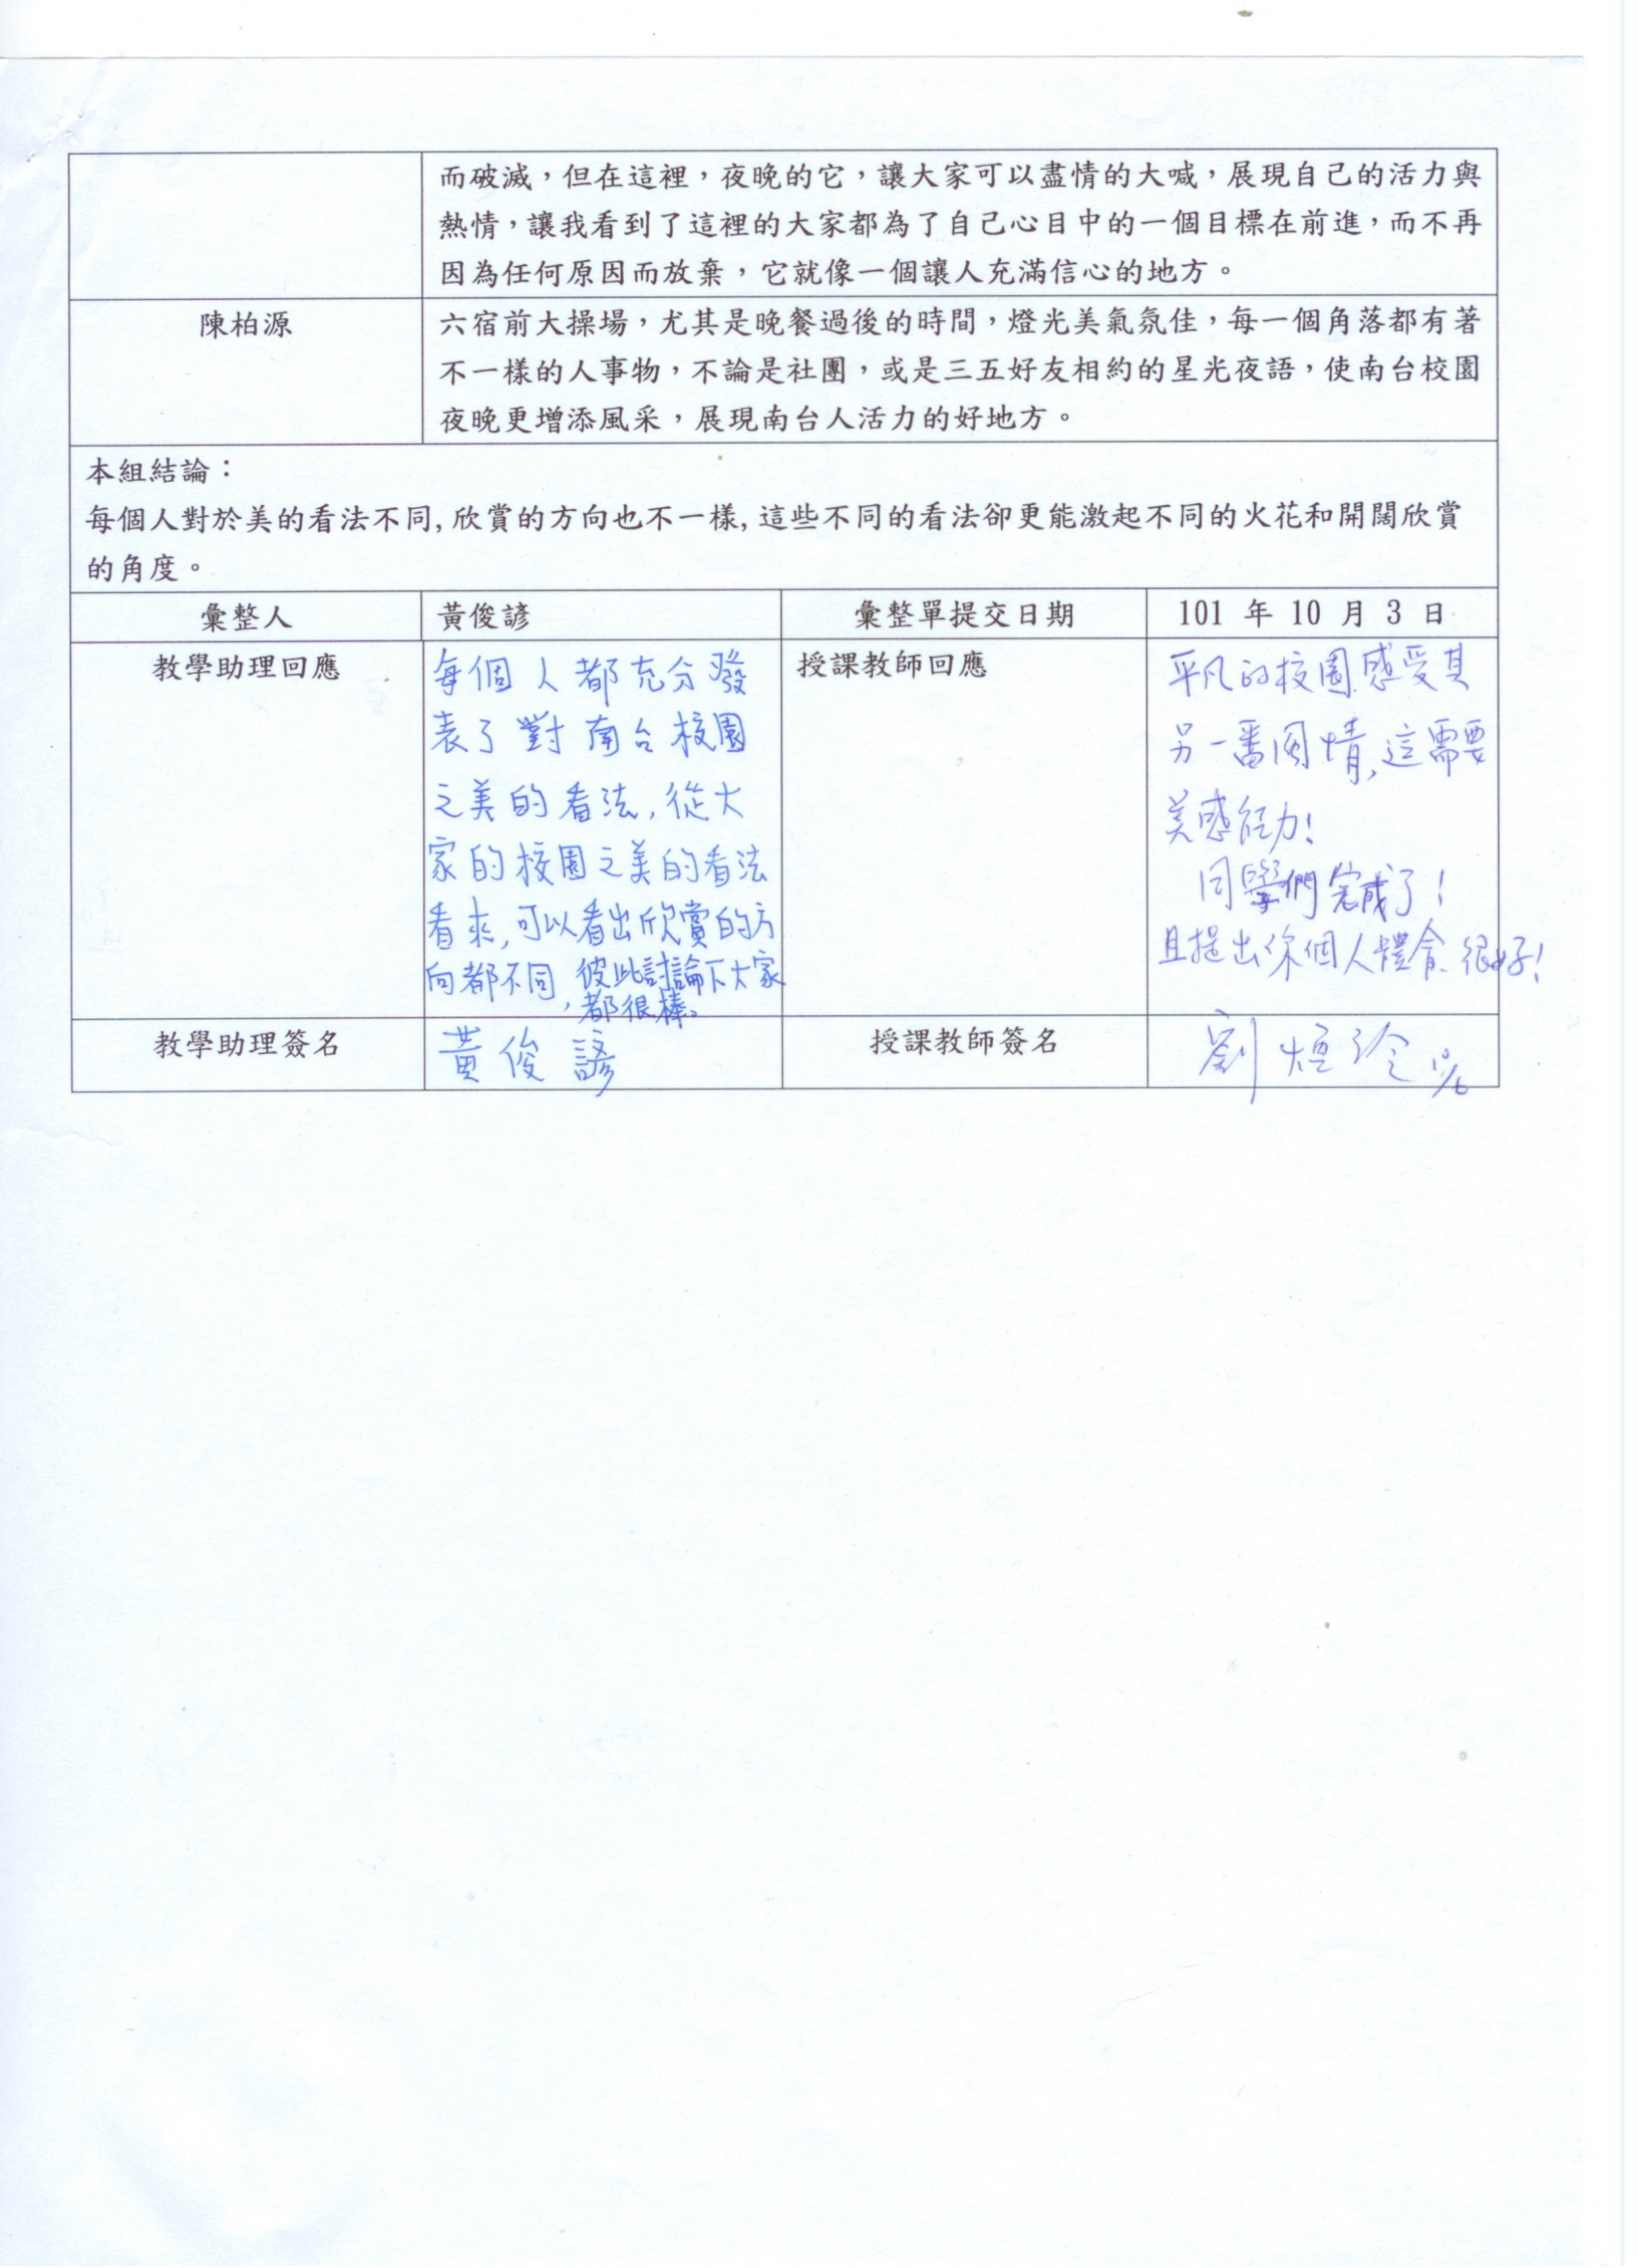 而破滅，但在這裡，夜晚的它，讓大家可以盡情的大喊，展現自己的活力與
熱情，讓我看到了這裡的大家都為了自己心目中的一個目標在前進，而不再
因為任何原因而放棄，它就像一個讓人充滿信心的地方。
陳柏源
六宿前大操場，尤其是晚餐過後的時間，燈光美氣氛佳，每一個角落都有著
不一樣的人事物，不論是社團，或是三五好友相約的星光夜語，使南台校園
夜晚更增添風采，展現南台人活力的好地方。
本組結論：
每個人對於美的看法不同,欣賞的方向也不一樣,這些不同的看法卻更能激起不同的火花和開闊欣賞
的角度。
彙整人
黃俊諺
彙整單提交日期
101 年 10 月 3 日
教學助理回應
每個人都充分發
表了對南台校園
之美的看法,從大
家的校園之美的看法
看來,可以看出欣賞的方
向都不同,彼此討論下大家
都很棒。
授課教師回應
平凡的校園感受其
另一番風情,這需要
美感能力!
同學們完成了!
且提出你個人體會.很好!
教學助理簽名
黃俊諺
授課教師簽名
劉 10/6